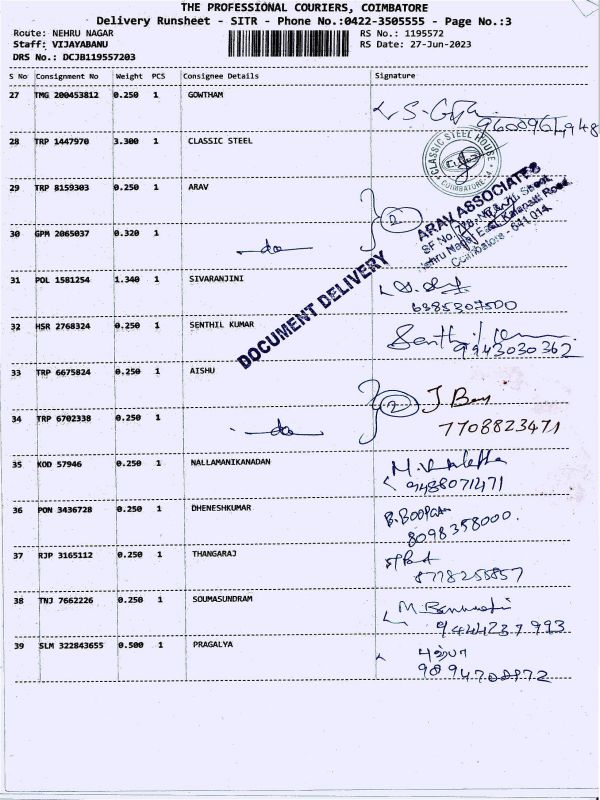 THE PROFESSIONAL COURIERS, COIMBATORE
Delivery Runsheet - SITR - Phone No.:0422-3505555 - Page No.:3
Route: NEHRU NAGAR RS No.: 1195572
Staff: VIJAYABANU RS Date: 27-Jun-2023
DRS No.: DCJB119557203
S No Consignment No Weight PCS Consignee Details Signature
27 TMG 200453812 0.250 1 GOWTHAM
9600964948
28 TRP 1447970 3.300 1 CLASSIC STEEL
CLASSIC STEEL HOUSE
COIMBATORE-14
29 TRP 8159303 0.250 1 ARAV
ARAV ASSOCIATES
Nehru Nagar East, Kalapatti Road,
Coimbatore - 641 014.
2
30 GPM 2065037 0.320 1 do
31 POL 1581254 1.340 1 SIVARANJINI
6385307500
DOCUMENT DELIVERY
32 HSR 2768324 0.250 1 SENTHIL KUMAR
9943030362
33 TRP 6675824 0.250 1 AISHU
2 J
34 TRP 6702338 0.250 1 do 7708823471
35 KOD 57946 0.250 1 NALLAMANIKANADAN
9488071471
36 PON 3436728 0.250 1 DHENESHKUMAR B.
8098358000.
37 RJP 3165112 0.250 1 THANGARAJ
8778255857
38 TNJ 7662226 0.250 1 SOUMASUNDRAM M
9444237993
39 SLM 322843655 0.500 1 PRAGALYA